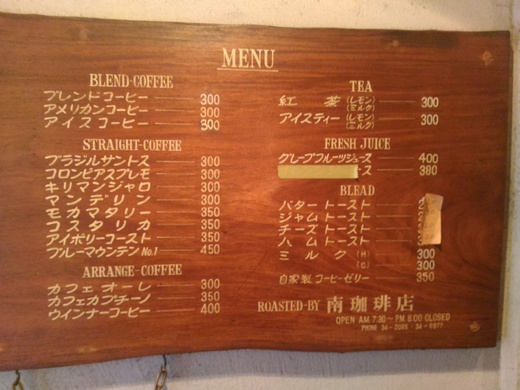 MENU
BLEND-COFFEE
ブレンドコーヒー 300
アメリカンコーヒー 300
アイスコーヒー 300
STRAIGHT-COFFEE
ブラジルサントス 300
コロンビアスプレモ 300
キリマンジャロ 300
マンデリン 300
モカマタリー 350
コスタリカ 350
アイボリーコースト 350
ブルーマウンテンNo.1 450
ARRANGE-COFFEE
カフェオーレ 300
カフェカプチーノ 350
ウインナーコーヒー 400
TEA
紅茶(レモン)(ミルク) 300
アイスティー(レモン)(ミルク) 300
FRESH JUICE
グレープフルーツジュース 400
ス 380
BLEAD
バタートースト
ジャムトースト
チーズトースト
ハムトースト
ミルク (H) 300
(C) 300
自家製コーヒーゼリー 350
ROASTED-BY 南珈琲店
OPEN AM 7:30~PM 8:00 CLOSED
PHONE 34-2085・34-6977